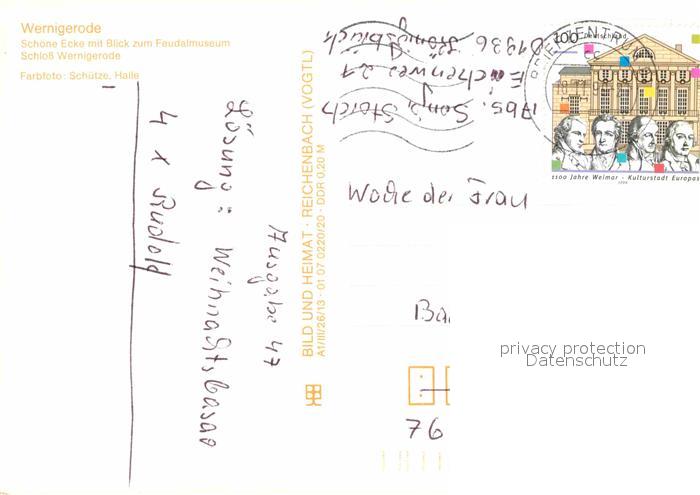 Wernigerode
Schöne Ecke mit Blick zum Feudalmuseum
Schloß Wernigerode
Farbfoto: Schütze, Halle
Lösung: Weihnachtsbasar
4 x Rudolf
Ausgabe 47
BILD UND HEIMAT · REICHENBACH (VOGTL)
A1/III/26/13 · 01 07 0220/20 · DDR 0,20 M
Abs. Sonja Storch
Eichenweg 21
01936 Königsbrück
Woche der Frau
Ba
76
100 Deutschland
BRIEFZENTRUM
1100 Jahre Weimar - Kulturstadt Europas
1999
privacy protection
Datenschutz